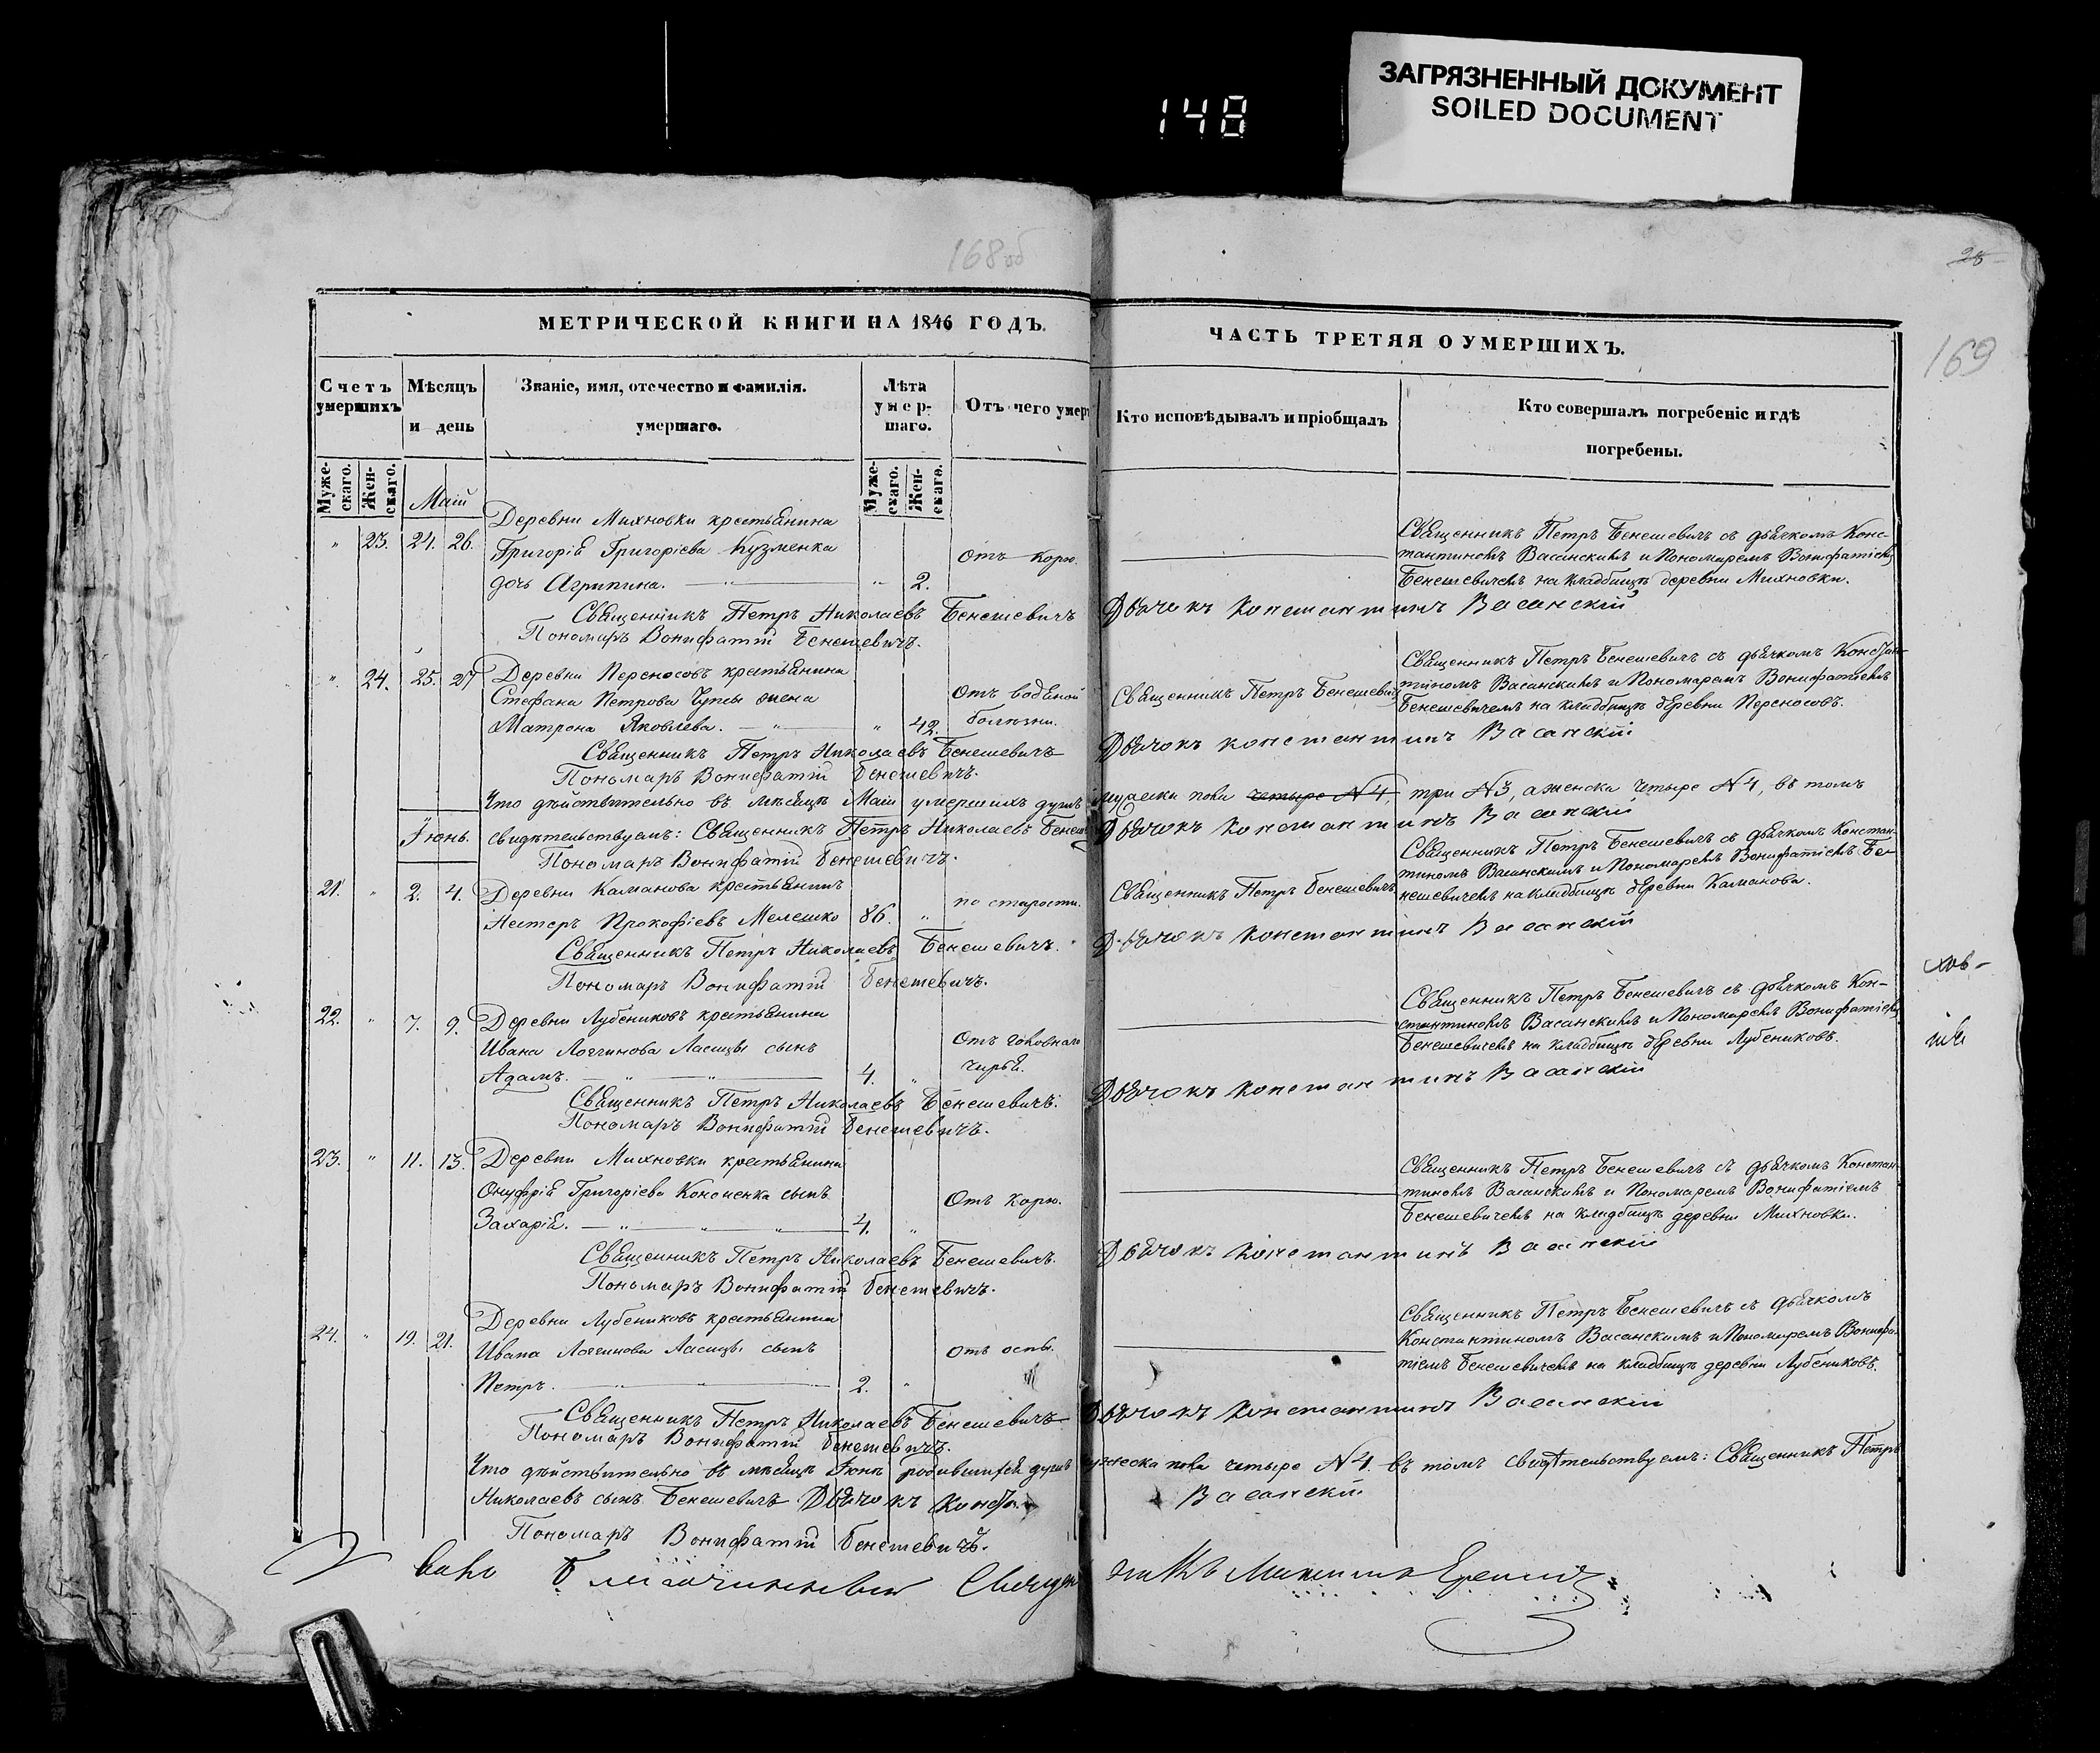 ЗАГРЯЗНЕННЫЙ ДОКУМЕНТ
SOILED DOCUMENT
148
168 об
28
169
МЕТРИЧЕСКОЙ КНИГИ НА 1846 ГОДЪ.
ЧАСТЬ ТРЕТЯЯ О УМЕРШИХЪ.
Счетъ умершихъ
Мѣсяцъ и день
Званіе, имя, отечество и фамилія.
умершаго.
Лѣта умер-
шаго.
Отъ чего умер
Кто исповѣдывалъ и пріобщалъ
Кто совершалъ погребеніе и гдѣ
погребены.
Муже-
скаго.
Жен-
скаго.
Муже-
скаго.
Жен-
скаго.
Маій
Деревни Михновки крестьянина
" 23. 24. 26. Григорія Григоріева Кузменка
дочь Агрипина. " 2. Отъ корю.
Священникъ Петръ Бенешевичъ съ дьячкомъ Конс-
тантиномъ Васанскимъ и Пономаремъ Вонифатіемъ
Бенешевичемъ на кладбищѣ деревни Михновки.
Священникъ Петръ Николаевъ Бенешевичъ Дьячокъ Константинъ Васанскій
Пономаръ Вонифатій Бенешевичъ.
" 24. 25. 27 Деревни Переносовъ крестьянина
Стефана Петрова Чупы жена
Матрона Яковлева. " 42. Отъ водяной
болѣзни.
Священникъ Петръ Бенешевичъ
Священникъ Петръ Бенешевичъ съ дьячкомъ Констан-
тиномъ Васанскимъ и Пономаремъ Вонифатіемъ
Бенешевичемъ на кладбищѣ деревни Переносовъ.
Священникъ Петръ Николаевъ Бенешевичъ Дьячокъ Константинъ Васанскій
Пономаръ Вонифатій Бенешевичъ.
Что дѣйствительно въ мѣсяцѣ Маіи умершихъ душъ мужеска пола четыре №4, три №3, а женска четыре №4, въ томъ
Іюнь. свидѣтельствуемъ: Священникъ Петръ Николаевъ Бенеш Дьячокъ Константинъ Васанскій
Пономаръ Вонифатій Бенешевичъ.
21. " 2. 4. Деревни Каманова крестьянинъ
Нестеръ Прокофіевъ Мелешко 86. " по старости.
Священникъ Петръ Бенешевичъ
Священникъ Петръ Бенешевичъ съ дьячкомъ Констан-
тиномъ Васанскимъ и Пономаремъ Вонифатіемъ Бе-
нешевичемъ на кладбищѣ деревни Каманова.
Священникъ Петръ Николаевъ Бенешевичъ. Дьячокъ Константинъ Васанскій
Пономаръ Вонифатій Бенешевичъ.
22. " 7. 9. Деревни Лубениковъ крестьянина
Ивана Логгинова Ласицы сынъ
Адамъ. 4. " Отъ головнаго
чирья.
Священникъ Петръ Бенешевичъ съ дьячкомъ Кон-
стантиномъ Васанскимъ и Пономаремъ Вонифатіемъ
Бенешевичемъ на кладбищѣ деревни Лубениковъ.
Священникъ Петръ Николаевъ Бенешевичъ. Дьячокъ Константинъ Васанскій
Пономаръ Вонифатій Бенешевичъ.
23. " 11. 13. Деревни Михновки крестьянина
Онуфрія Григоріева Кононенка сынъ
Захарій. 4. " Отъ корю.
Священникъ Петръ Бенешевичъ съ дьячкомъ Констан-
тиномъ Васанскимъ и Пономаремъ Вонифатіемъ
Бенешевичемъ на кладбищѣ деревни Михновки.
Священникъ Петръ Николаевъ Бенешевичъ. Дьячокъ Константинъ Васанскій
Пономаръ Вонифатій Бенешевичъ.
24. " 19. 21. Деревни Лубениковъ крестьянина
Ивана Логгинова Ласицы сынъ
Петръ. 2. " Отъ оспы.
Священникъ Петръ Бенешевичъ съ дьячкомъ
Константиномъ Васанскимъ и Пономаремъ Вонифа-
тіемъ Бенешевичемъ на кладбищѣ деревни Лубениковъ.
Священникъ Петръ Николаевъ Бенешевичъ Дьячокъ Константинъ Васанскій
Пономаръ Вонифатій Бенешевичъ.
Что дѣйствительно въ мѣсяцѣ Іюнѣ родившихся душъ мужеска пола четыре №4. въ томъ свидѣтельствуемъ: Священникъ Петръ
Николаевъ сынъ Бенешевичъ Дьячокъ Конста Васанскій
Пономаръ Вонифатій Бенешевичъ.
Благочинный Священникъ